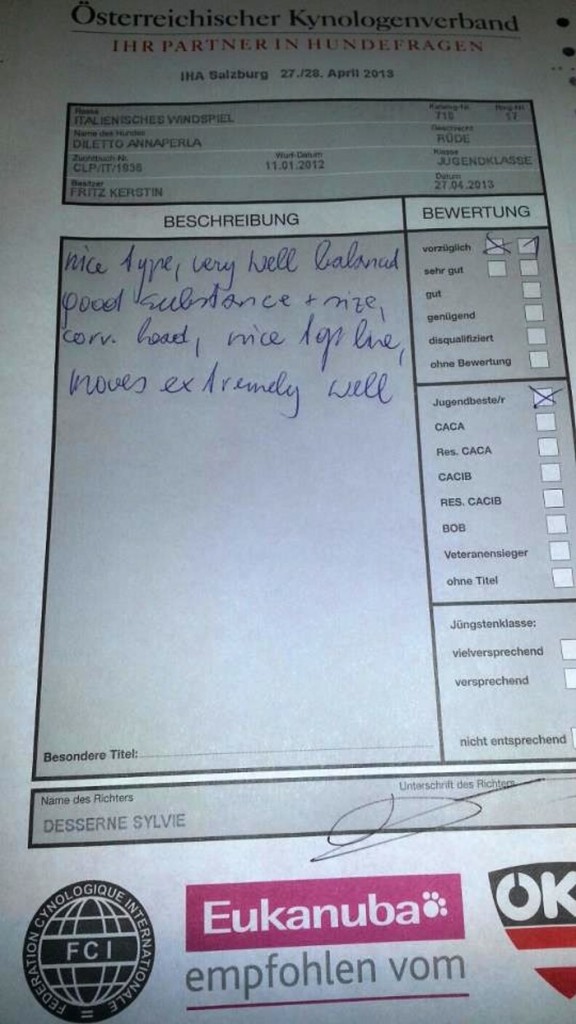 Österreichischer Kynologenverband
IHR PARTNER IN HUNDEFRAGEN
IHA Salzburg 27./28. April 2013
Rasse Katalog-Nr. Ring-Nr.
ITALIENISCHES WINDSPIEL 718 17
Name des Hundes Geschlecht
DILETTO ANNAPERLA RÜDE
Zuchtbuch-Nr. Wurf-Datum Klasse
CLP/IT/1936 11.01.2012 JUGENDKLASSE
Besitzer Datum
FRITZ KERSTIN 27.04.2013
BESCHREIBUNG
nice type, very well balanced
good substance + size,
corr. head, nice top line,
moves extremely well
Besondere Titel:
BEWERTUNG
vorzüglich 1
sehr gut
gut
genügend
disqualifiziert
ohne Bewertung
Jugendbeste/r
CACA
Res. CACA
CACIB
RES. CACIB
BOB
Veteranensieger
ohne Titel
Jüngstenklasse:
vielversprechend
versprechend
nicht entsprechend
Name des Richters Unterschrift des Richters
DESSERNE SYLVIE
FEDERATION CYNOLOGIQUE INTERNATIONALE
FCI
Eukanuba
empfohlen vom
ÖK